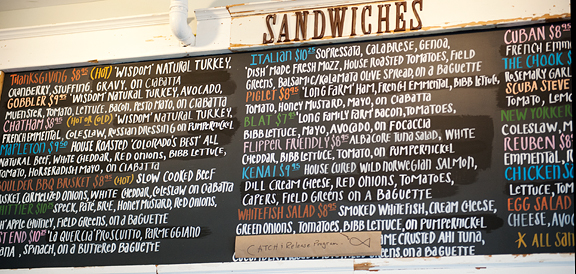 SANDWICHES
THANKSGIVING $8 (HOT) 'WISDOM' NATURAL TURKEY,
CRANBERRY, STUFFING, GRAVY, ON CIABATTA
GOBBLER $9 'WISDOM' NATURAL TURKEY, AVOCADO,
MUENSTER, TOMATO, LETTUCE, BACON, PESTO MAYO, ON CIABATTA
CHATHAM $8 (HOT OR COLD) 'WISDOM' NATURAL TURKEY,
FRENCH EMMENTAL, COLESLAW, RUSSIAN DRESSING ON PUMPERNICKEL
MAPLETON $9 HOUSE ROASTED 'COLORADO'S BEST' ALL
NATURAL BEEF, WHITE CHEDDAR, RED ONIONS, BIBB LETTUCE,
TOMATO, HORSERADISH MAYO, ON CIABATTA
BOULDER BBQ BRISKET $8 (HOT) SLOW COOKED BEEF
BRISKET, CARMELIZED ONIONS, WHITE CHEDDAR, COLESLAW ON CIABATTA
$10 SPECK, PATE, BRIE, HONEY MUSTARD, RED ONIONS,
FIELD GREENS, ON A BAGUETTE
END $10 'LA QUERCIA' PROSCIUTTO, PARMEGGIANO
, SPINACH, ON A BUTTERED BAGUETTE
ITALIAN $10 SOPRESSATA, CALABRESE, GENOA,
'DISH' MADE FRESH MOZZ, HOUSE ROASTED TOMATOES, FIELD
GREENS, BALSAMIC/KALAMATA OLIVE SPREAD, ON A BAGUETTE
FILLET $8 'LONG FARM' HAM, FRENCH EMMENTAL, BIBB LETTUCE,
TOMATO, HONEY MUSTARD, MAYO, ON CIABATTA
BLAT $7 'LONG FAMILY FARM' BACON, TOMATOES,
BIBB LETTUCE, MAYO, AVOCADO, ON FOCACCIA
FLIPPER FRIENDLY $8 ALBACORE TUNA SALAD, WHITE
CHEDDAR, BIBB LETTUCE, TOMATO, ON PUMPERNICKEL
KENAI $9 HOUSE CURED WILD NORWEGIAN SALMON,
DILL CREAM CHEESE, RED ONIONS, TOMATOES,
CAPERS, FIELD GREENS ON A BAGUETTE
WHITEFISH SALAD $8 SMOKED WHITEFISH, CREAM CHEESE,
GREEN ONIONS, TOMATOES, BIBB LETTUCE, ON PUMPERNICKEL
CATCH & RELEASE PROGRAM
CRUSTED AHI TUNA,
ON A BAGUETTE
CUBAN $8
FRENCH EMME
THE COOK $
ROSEMARY GARL
SCUBA STEVE
TOMATO, LEMO
NEW YORKER
COLESLAW, M
REUBEN $8
EMMENTAL, R
CHICKEN SA
LETTUCE, TOM
EGG SALAD
CHEESE, AVOC
* ALL SAN